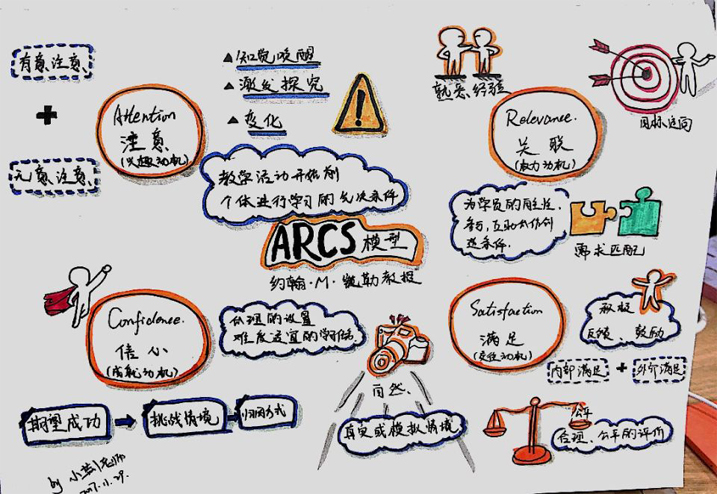 有意注意
+
无意注意
Attention
注意
(兴趣动机)
▲知觉唤醒
▲激发探究
▲变化
!
教学活动开始前
个体进行学习的先决条件
ARCS模型
约翰·M·凯勒教授
熟悉经验
Relevance.
关联
(权力动机)
目标定向
为学员的自主性、
参与,互助合作创
造条件.
需求匹配
Confidence.
信心
(成就动机)
合理的设置
难度适宜的
期望成功
挑战情境
归因方式
自然.
真实或模拟情境
Satisfaction
满足
内部满足
+
外部满足
反馈、鼓励
公平
合理、公平的评价
by 小
2017.11.29.